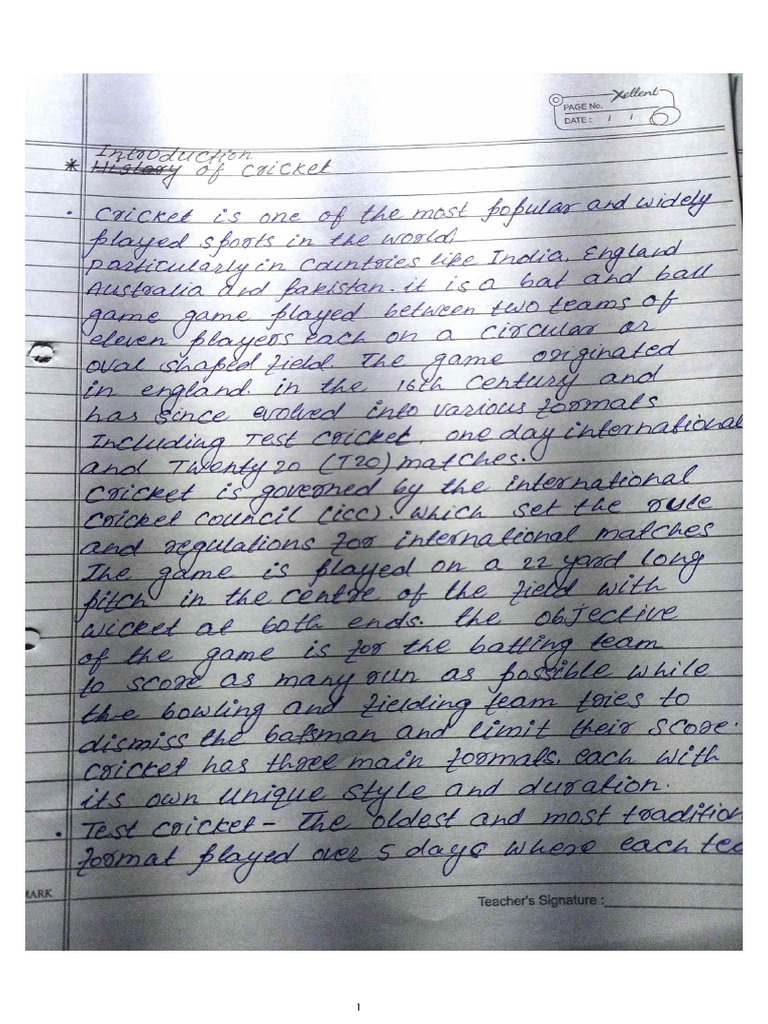 Xellent
PAGE No.
DATE: / /
Introduction
* History of cricket
• Cricket is one of the most popular and widely
played sports in the world,
particularly in countries like India, England
Australia and Pakistan. it is a bat and ball
game game played between two teams of
eleven players each on a circular or
oval shaped field. The game originated
in england. in the 16th century and
has since evolved into various formats
Including Test cricket, one day international
and Twenty 20 (T20) matches.
Cricket is governed by the international
cricket council (icc). which set the rule
and regulations for international matches
The game is played on a 22 yard long
pitch in the centre of the field with
wicket at both ends. the objective
of the game is for the batting team
to score as many run as possible while
the bowling and fielding team tries to
dismiss the batsman and limit their score.
cricket has three main formats, each with
its own unique style and duration.
• Test cricket - The oldest and most tradition
format played over 5 days where each tea
ARK
Teacher's Signature :
1